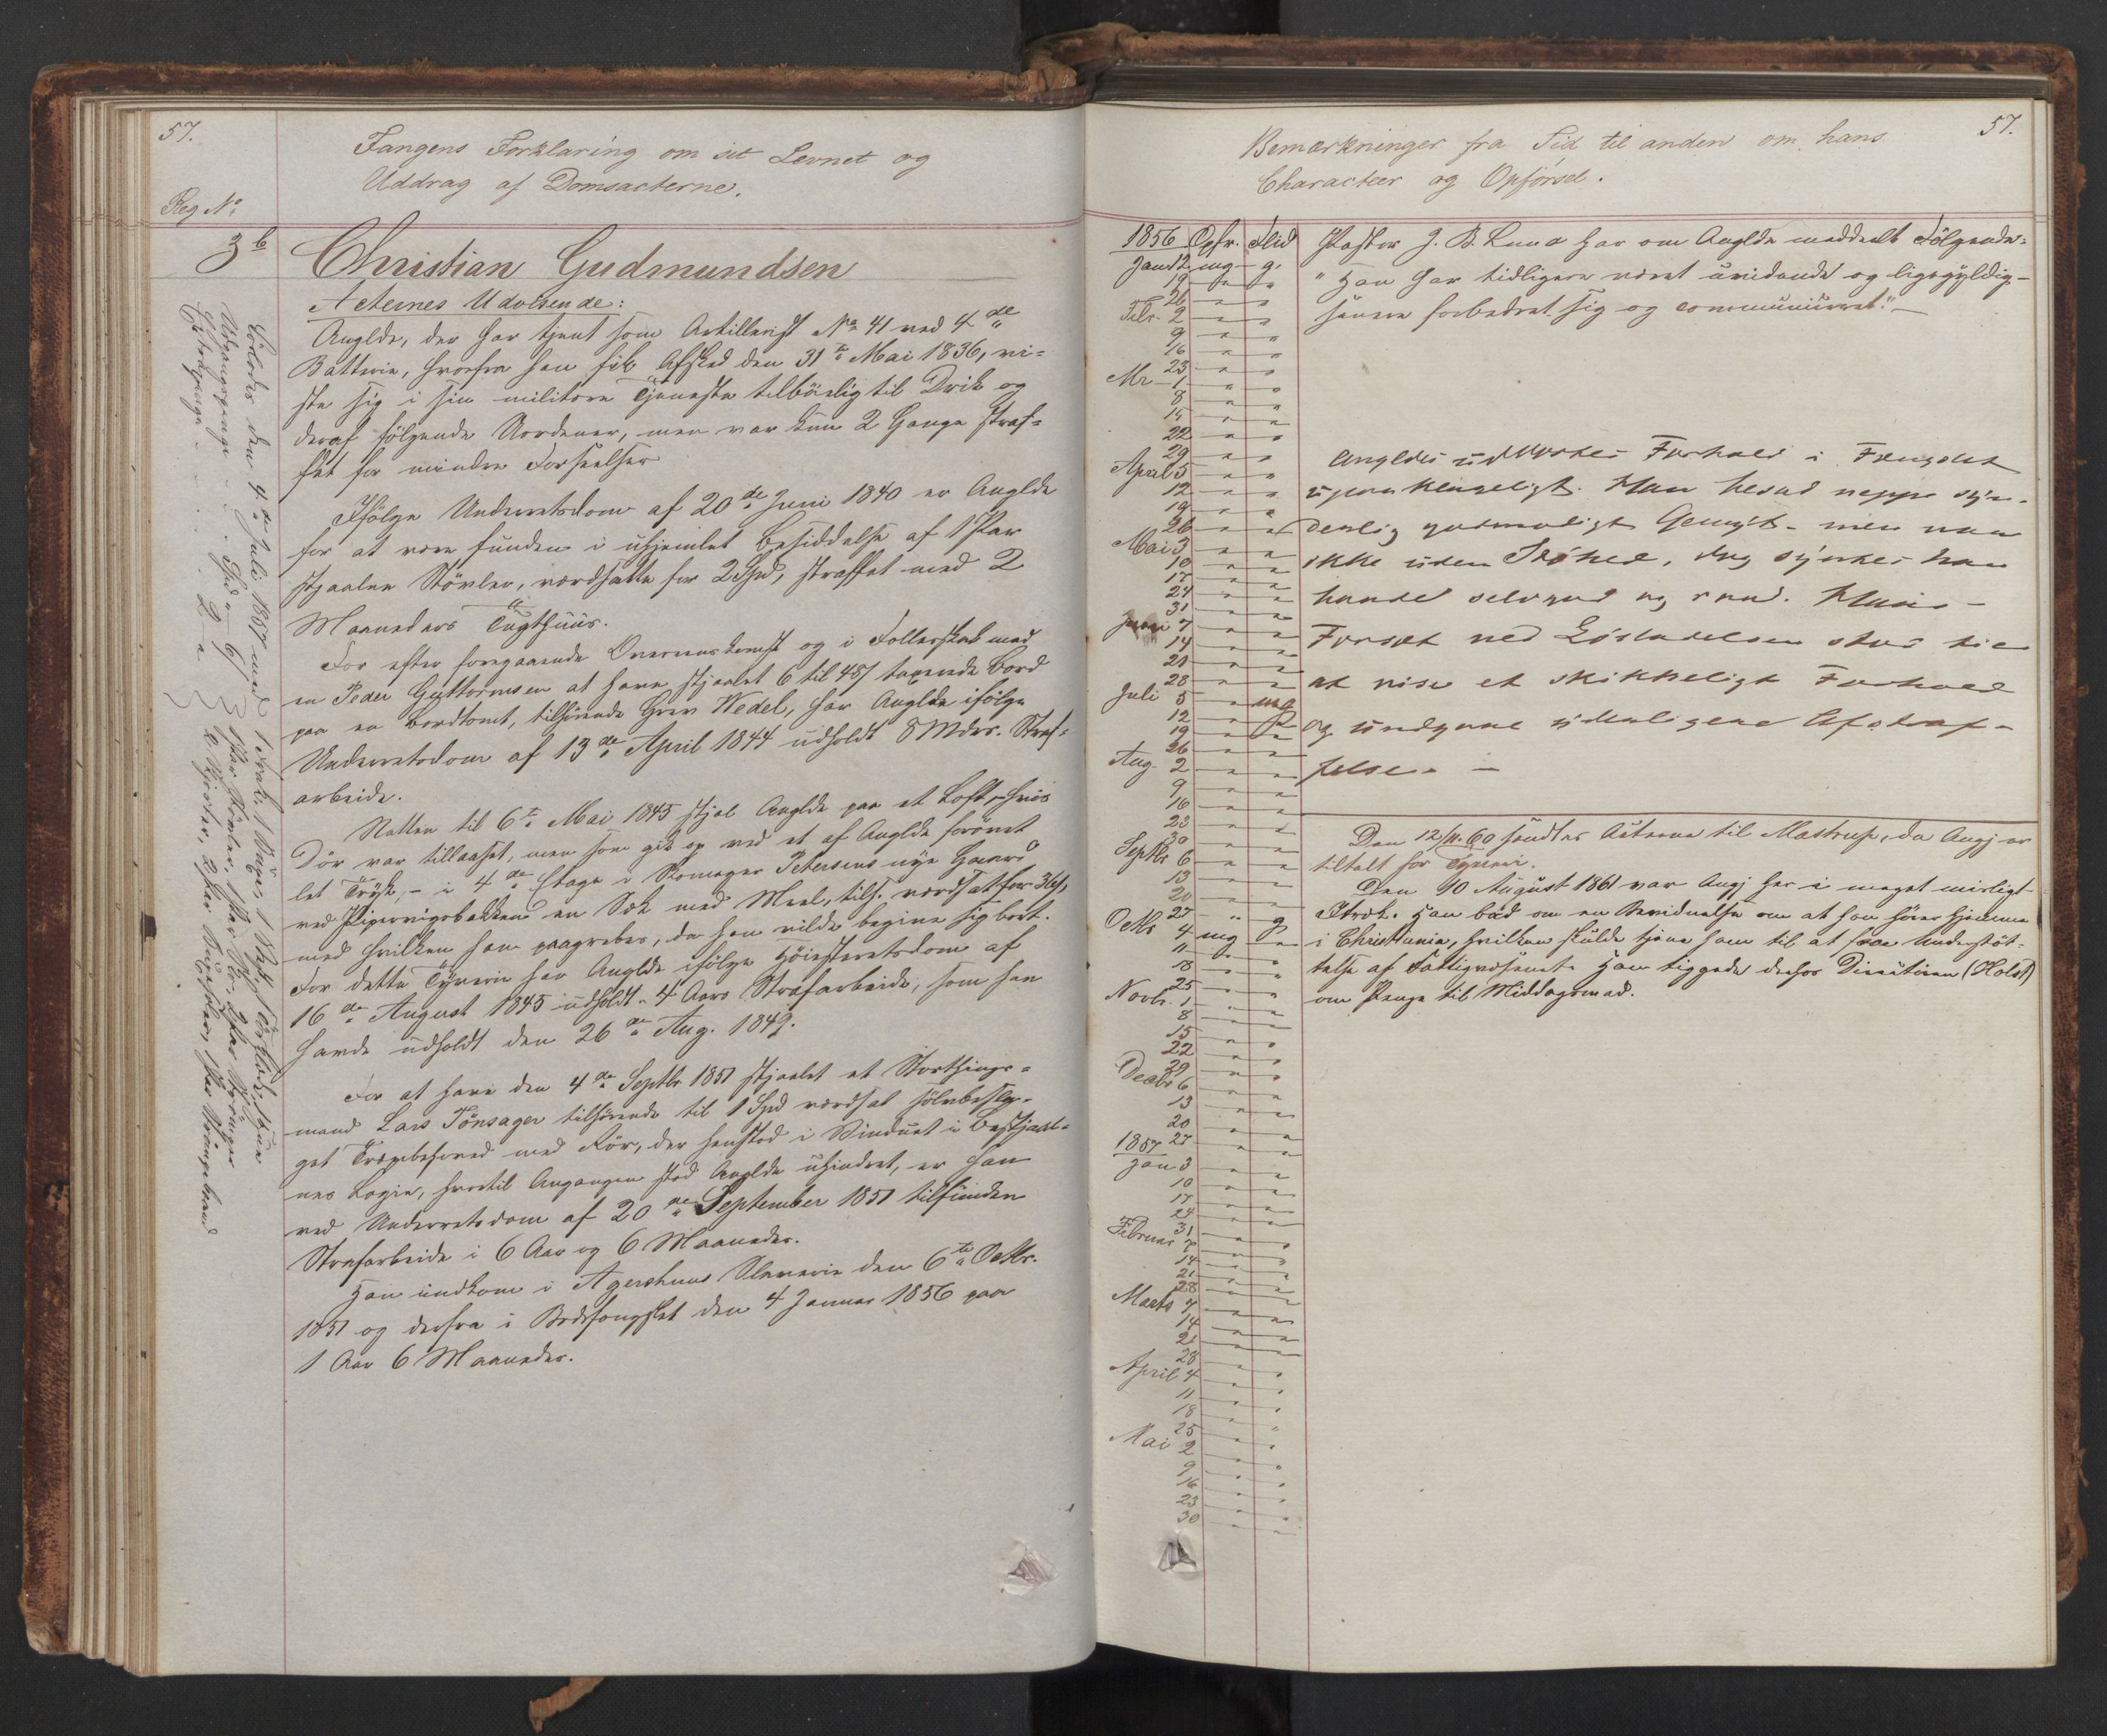 57.
Fangens Forklaring om sit Levnet og
Uddrag af Domsacterne.
Reg №
3 b
Christian Gudmundsen
Acternes Udvisende:
Anglde, der har tjent som Artillerist № 41 ved 4de
Batterie, hvorfra han fik Afsked den 31te Mai 1836, vi-
ste sig i sin militære Tjeneste tilbøielig til Drik og
deraf følgende Uordener, men var kun 2 Gange straf-
fet for mindre Forseelser
Ifølge Underretsdom af 20de Juni 1840 er Anglde
for at være funden i uhjemlet Besiddelse af 1 Par
stjaalne Støvler, værdsatte for 2 Spd, straffet med 2
Maaneders Tugthuus.
For efter foregaaende Overenskomst og i Fællesskab med
en Peder Guttormsen at have stjaalet 6 til 48 β taxerede Bord
paa en Bordtomt, tilhørende Grev Wedel, har Anglde ifølge
Underretsdom af 13de April 1844 udholdt 8 Mdrs. Straf-
arbeide.
Natten til 6te Mai 1845 stjal Anglde paa et Loft, hvis
Dør var tillaaset, men som gik op ved et af Anglde forøvet
let Tryk, – i 4de Etage i Skomager Petersens nye Gaard
ved Pipervigsbakken en Sæk med Meel, tilh. værdsat for 36 β,
med hvilken han paagrebes, da han vilde begive sig bort.
For dette Tyverie har Anglde ifølge Høiesteretsdom af
16de August 1845 udholdt 4 Aars Strafarbeide, som han
havde udholdt den 26de Aug. 1849.
For at have den 4de Septbr 1851 stjaalet et Storthings-
mand Lars Tønsager tilhørende til 1 Spd værdsat sølvbeslag-
get Træpibehoved med Rør, der henstod i Vinduet i Bestjaal-
nes Logie, hvortil Angangen stod Anglde uhindret, er han
ved Underretsdom af 20de September 1851 tilfunden
Strafarbeide i 6 Aar og 6 Maaneder.
Han indkom i Agershuus Slaverie den 6te Octbr.
1851 og derfra i Bodsfængslet den 4 Januar 1856 paa
1 Aar 6 Maaneder.
Løslodes den 4de Juli 1857 med 1 Frak, 1 Buxe, 1 Vest, 1 Halskl, 1 Hue
Udgangspenge Spd 6 1 Par Støvler, 1 Par Sko, 2 Par Strømper
Extrapenge 2 2 Skjorter, 2 Par
57.
Bemærkninger fra Tid til anden om hans
Characteer og Opførsel.
1856 Opfr. Flid
Jan 12 mg g
19 " "
26 " "
Febr. 2 " "
9 " "
16 " "
23 " "
Mr 1 " "
8 " "
15 " "
22 " "
29 " "
April 5 " "
12 " "
19 " "
26 " "
Mai 3 " "
10 " "
17 " "
24 " "
31 " "
Juni 7 " "
14 " "
21 " "
28 " "
Juli 5 " mg
12 " g
19 " "
26 " "
Aug. 2 " "
9 " "
16 " "
23 " "
30 " "
Septbr 6 " "
13 " "
20 " "
27 " g
Octbr 4 mg "
11 " "
18 " "
25 " "
Novbr. 1 " "
8 " "
15 " "
22 " "
29 " "
Decbr 6 " "
13 " "
20 " "
27 " "
1857
Jan 3 " "
10 " "
17 " "
24 " "
31 " "
Februar 7 " "
14 " "
21 " "
28 " "
Marts 7 " "
14 " "
21 " "
28 " "
April 4 " "
11 " "
18 " "
25 " "
Mai 2 " "
9 " "
16 " "
23 " "
30 " "
Pastor J. B. Lund har om Anglde meddeelt Følgende:
"Han har tidligere været uvidende og ligegyldig –
senere forbedret sig og communiceret." –
Angldes udviste Forhold i Fængslet
upaaklageligt. Han besad neppe syn-
derlig godmodigt Gemyt – men var
ikke uden Raahed, dog syntes han
Forsæt ved Løsladelsen stod til
at vise et skikkeligt Forhold
og undgaae yderligere Afstraf-
felser –
Den 12/11. 60 sendtes Acterne til Mastrup, da Angj er
tiltalt for Tyverie.
Den 10 August 1861 var Angj her i meget uvirligt
Udtræk. Han bad om en Bevidnelse om at han hører hjemme
i Christiania, hvilken skulde tjene ham til at faae Understøt-
telse af Fattigvæsenet. Han tiggede derhos Directøren (Holst)
om Penge til Middagsmad.